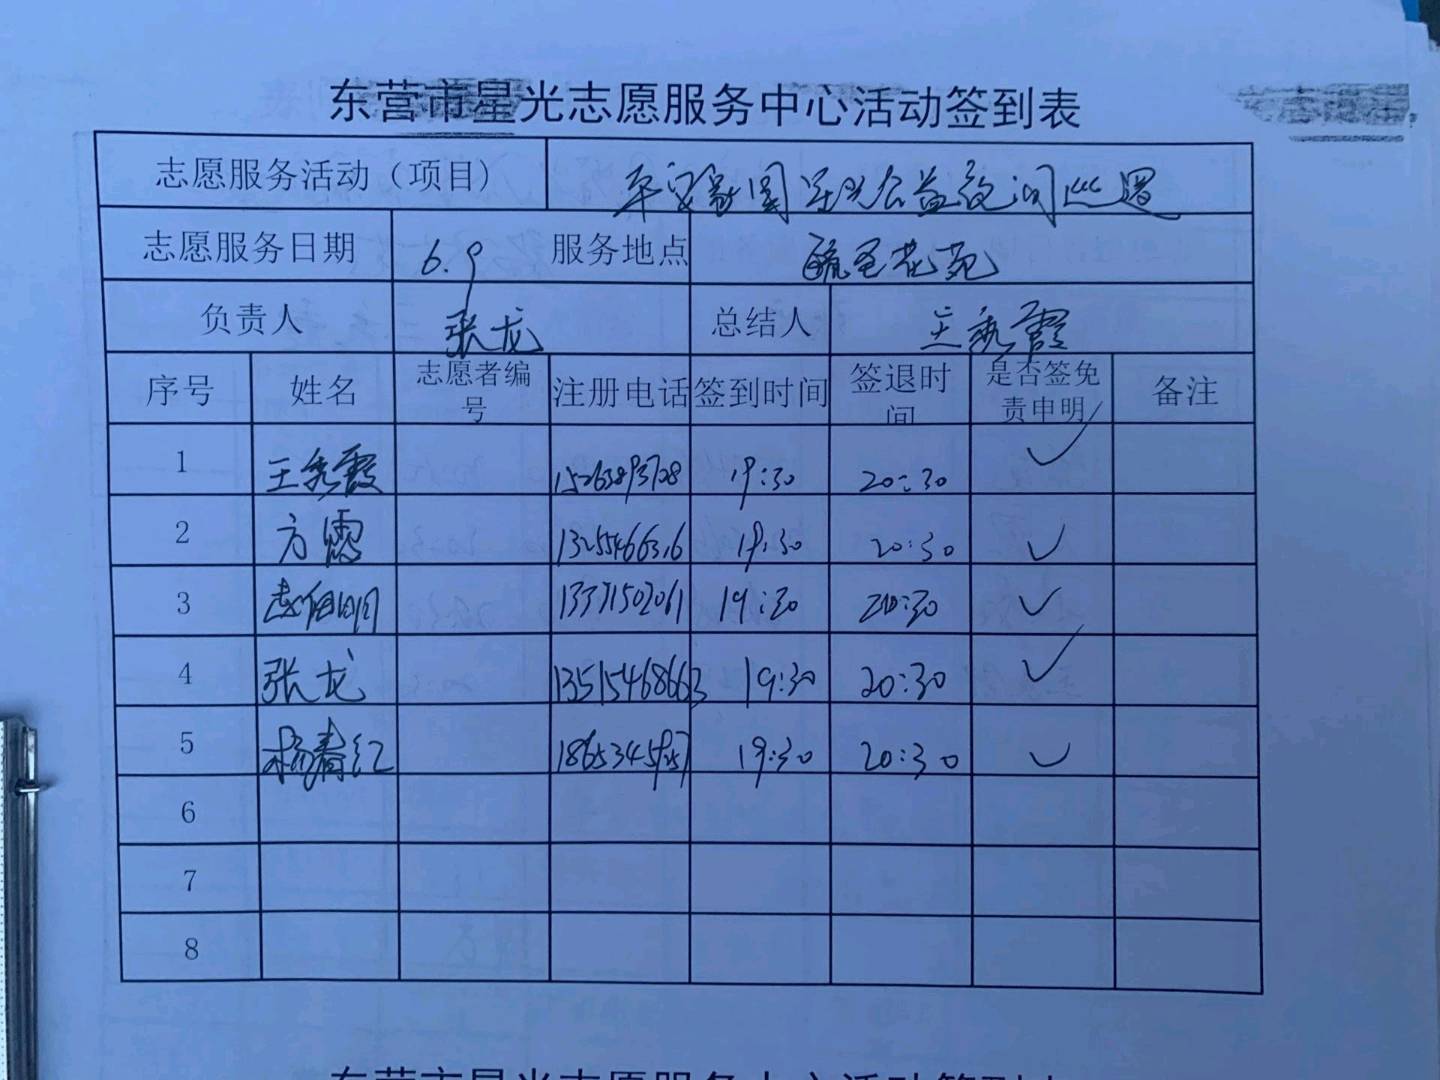 东营市星光志愿服务中心活动签到表
志愿服务活动（项目） 平安家园星光公益夜间巡逻
志愿服务日期 6.9 服务地点 花苑
负责人 张龙 总结人 王秀霞
序号 姓名 志愿者编号 注册电话 签到时间 签退时间 是否签免责申明 备注
1 王秀霞 19:30 20:30 ✓
2 方 19:30 20:30 ✓
3 13371502061 19:30 20:30 ✓
4 张龙 13515468663 19:30 20:30 ✓
5 杨春红 19:30 20:30 ✓
6
7
8